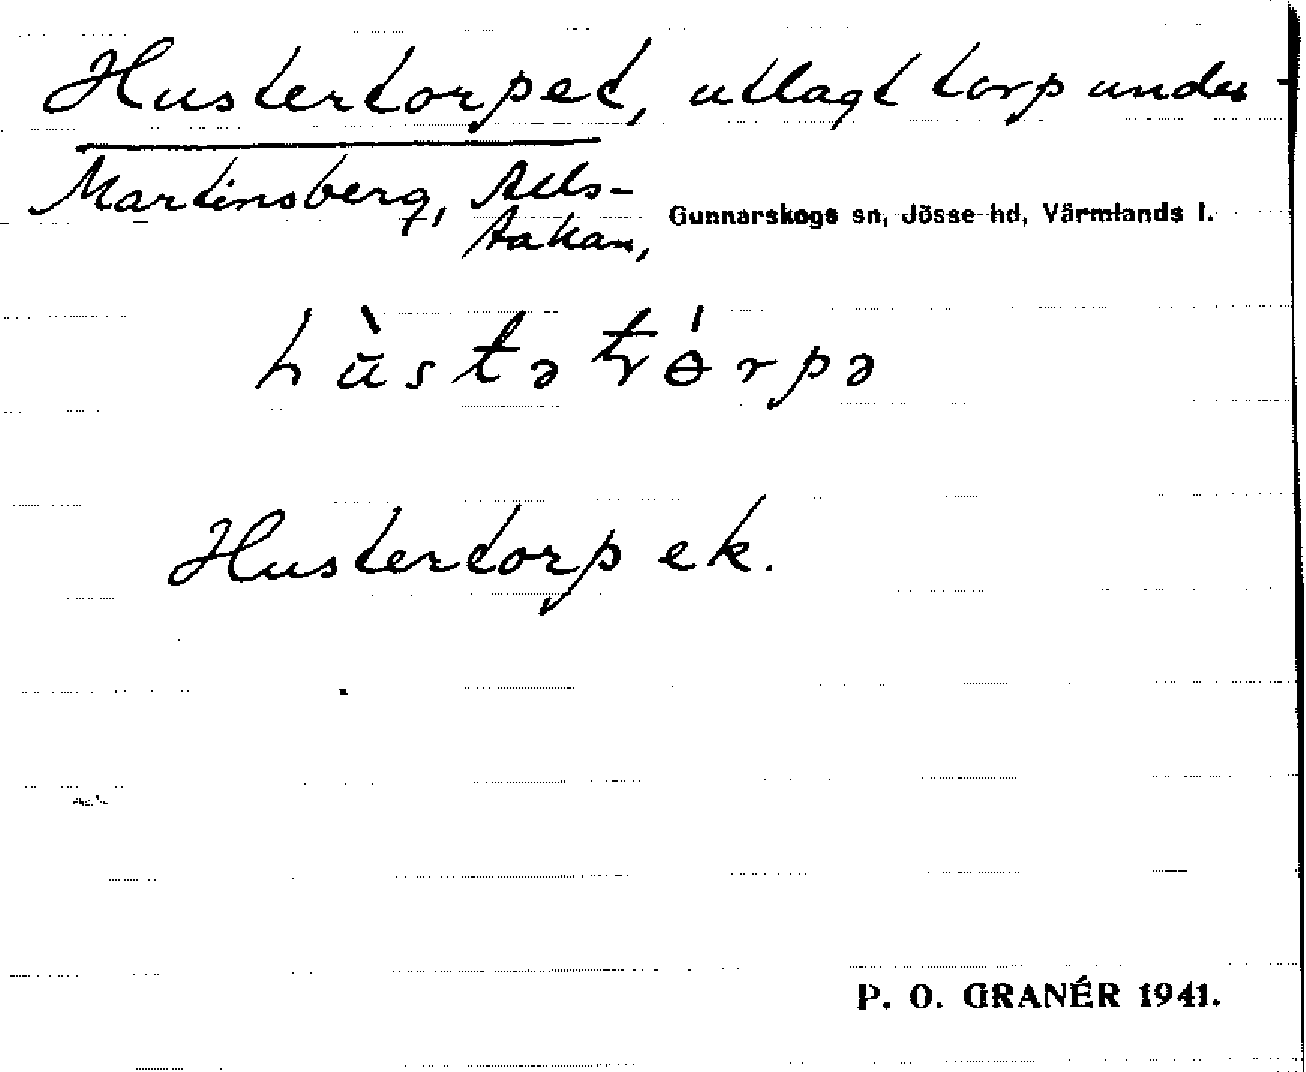 Hustertorpet, utlagt torp under
Martinsberg, Älls-
takan, Gunnarskogs sn, Jösse hd, Värmlands l.
hùstə tórpə
Hustertorp ek.
P. O. GRANÉR 1941.